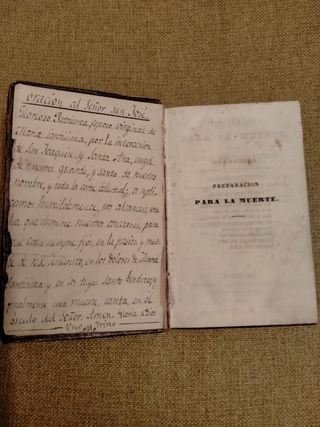 oración al Señor San José
Glorioso Patriarca, esposo virginal de
Maria Santisima, por la interseción
de San Joaquin y Santa Ana, angel
de nuestra guarda, y santo de nuestro
nombre, y toda la corte celestial; os suplicamos
humildemente, nos alcanceis, una
luz que ilumine nuestros corazones, para
que esten siempre fijos, en la pasión y muerte
de N.S. Jesucristo, en los Dolores de Maria
Santisima y en los tuyos Santo bendito; y
finalmente una muerte, santa, en el
ósculo del Señor. Amen. Gloria a Dios
Uno y trino
PREPARACION
PARA LA MUERTE.